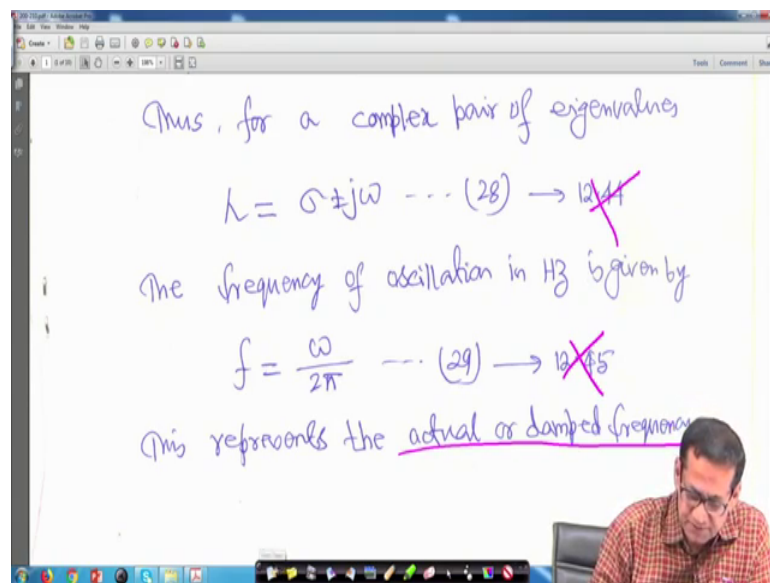 200-250.pdf - Adobe Acrobat Pro
File Edit View Window Help
Create
Tools Comment
Thus, for a complex pair of eigenvalues
λ = σ ± jω ---- (28) → 12.44
The frequency of oscillation in HZ is given by
f = ω / 2π ---- (29) → 12.45
This represents the actual or damped frequency